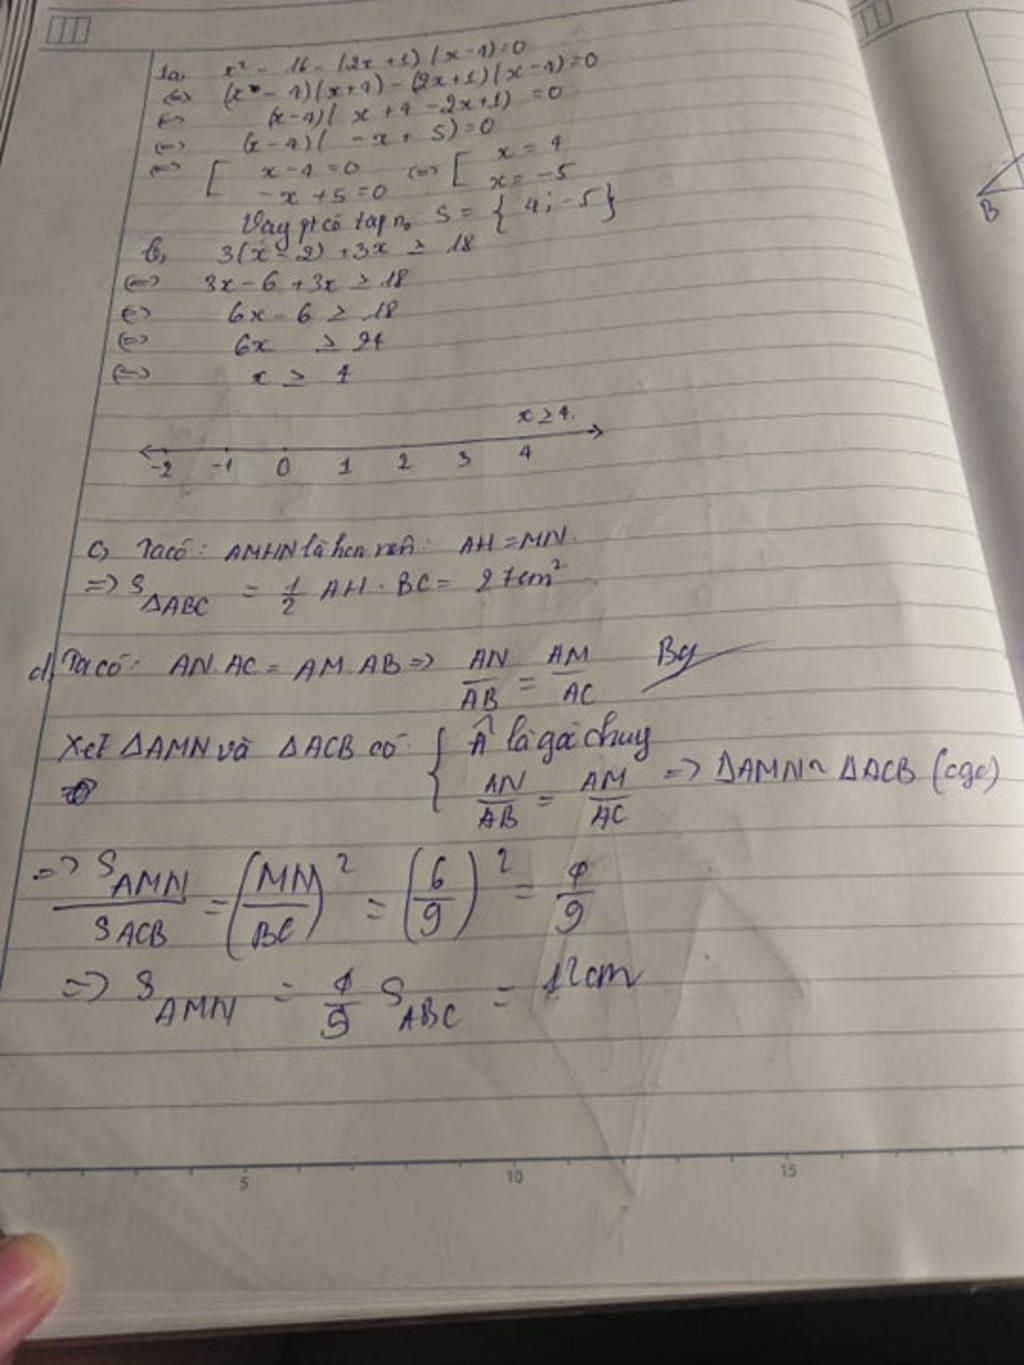 1a, x² - 16 - (2x + 1)(x - 4) = 0
<=> (x - 4)(x + 4) - (2x + 1)(x - 4) = 0
<=> (x - 4)(x + 4 - 2x + 1) = 0
<=> (x - 4)(-x + 5) = 0
<=> [ x - 4 = 0 <=> [ x = 4
-x + 5 = 0 x = -5
Vay pt có tập no S = { 4; -5 }
b, 3(x - 2) + 3x ≥ 18
<=> 3x - 6 + 3x ≥ 18
<=> 6x - 6 ≥ 18
<=> 6x ≥ 24
<=> x ≥ 4
x ≥ 4.
-2 -1 0 1 2 3 4
c, Ta có: AMHN là hcn nên: AH = MN.
=> S ΔABC = 1/2 AH . BC = 27cm²
d, Ta có: AN. AC = AM. AB => AN/AB = AM/AC
Xét ΔAMN và ΔACB có { Â là góc chung
AN/AB = AM/AC => ΔAMN ~ ΔACB (cgc)
=> S AMN / S ACB = (MN/BC)² = (6/9)² = 4/9
=> S AMN = 4/9 S ABC = 12cm
B
5 10 15